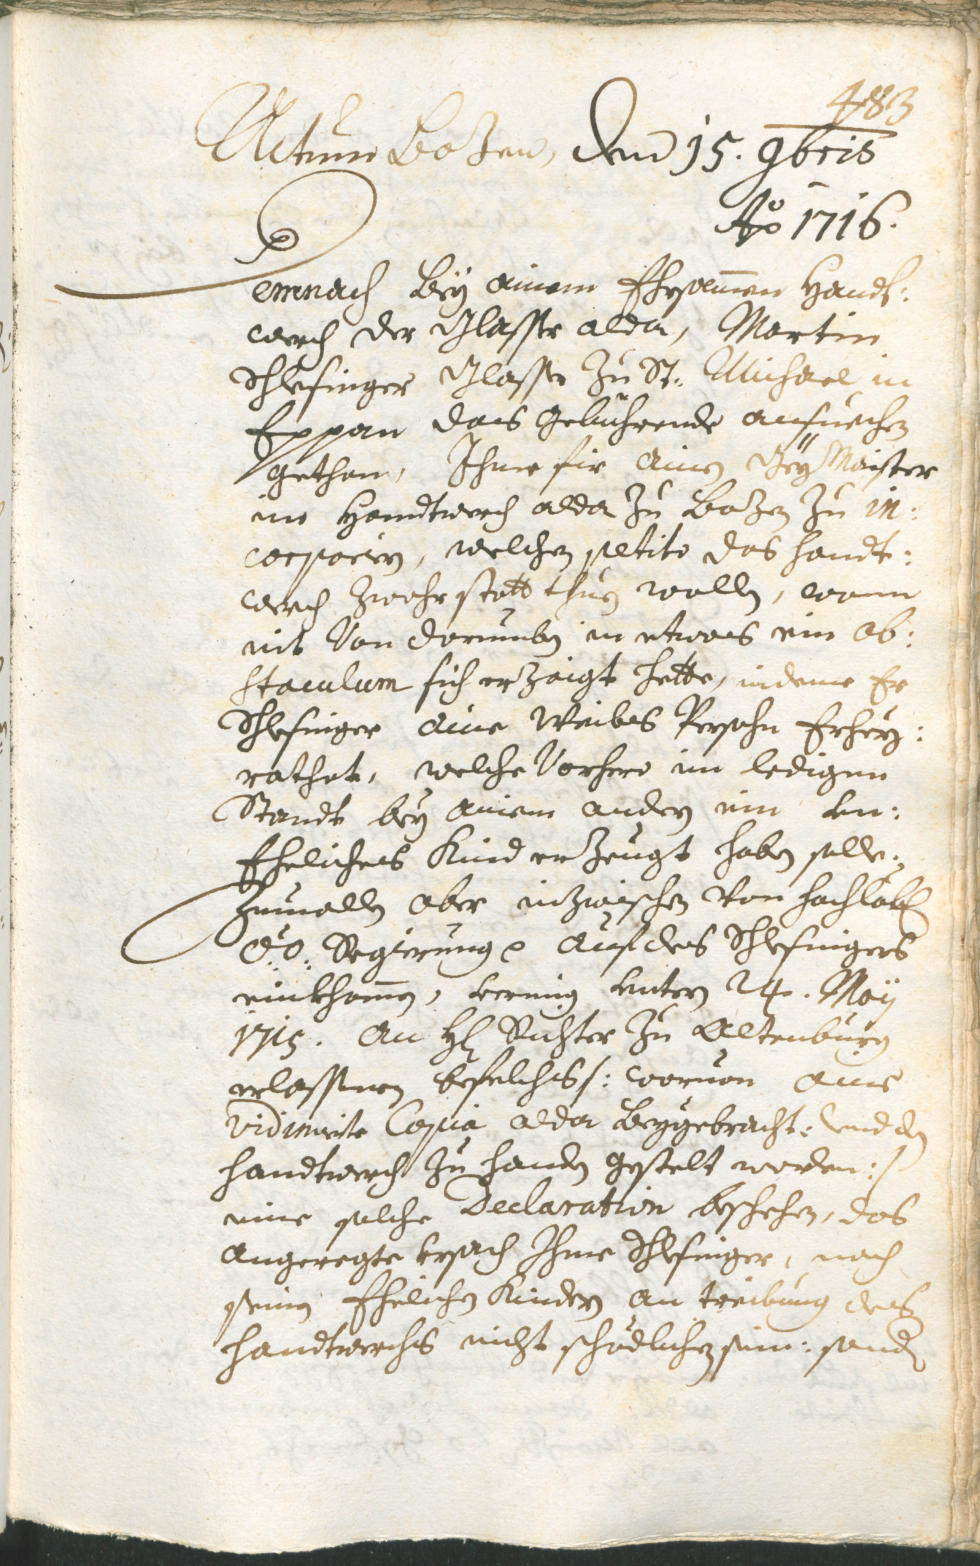 483
Actum Bozen, den 15. 9bris
Ao 1716.
Demnach bey ainem Ehrsammen Handt:
werch der Glasser alda, Martin
Schlesinger Glasser zu St: Michael in
Eppan das gebührende ansuechen
gethan, Ihme für ainen Gey Maister
ins Handtwerch alda zu Bozen zu in:
corporirn, welchen petito das handt:
werch zwahr statt thuen wollen, wann
nit von dorumben in etwas ein ob:
staculum sich erzaigt hette, indeme Er
Schlesinger aine Weibs Persohn Erhey:
rathet, welche vorhero im ledigen
Standt bey ainem andern ein un:
Eheliches Kind erzeugt haben solle:
Zumallen aber inzwischen von hochlobl
O: Ö: Regierung auf des Schlesingers
einkhommen, unterm 24. May
1715. An H: Richter zu Altenburg
erlassnen befelchs /: wouon aine
vidimirte Copia alda beygebracht: vnd den
handtwerch zu handen gestelt worden :/
eine solche Declaration beschehen, das
angeregte ursach Ihme Schlesinger, noch
seinen Ehelichen Kindern an treibung des
handtwerchs nicht schödlichen sein: sonder